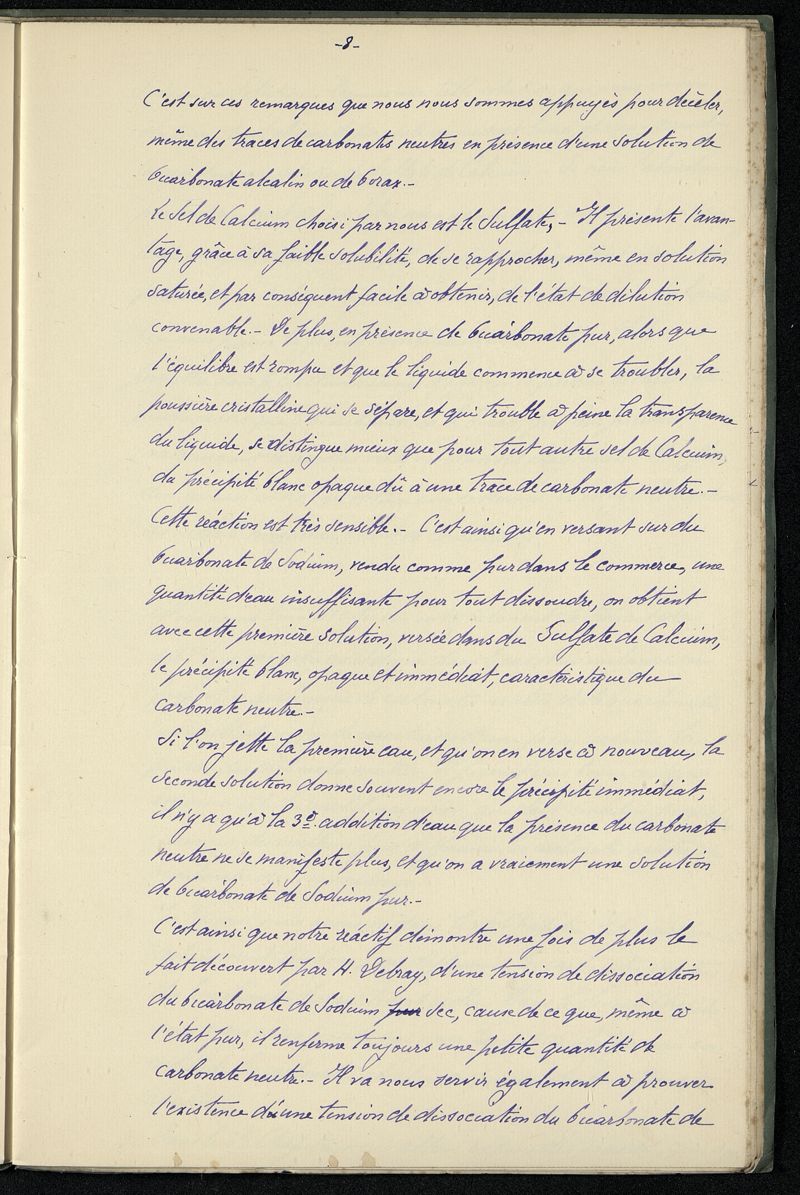 -8-
C'est sur ces remarques que nous nous sommes appuyés pour déceler,
même des traces de carbonates neutres en présence d'une solution de
bicarbonate alcalin ou de borax.-
Le Sel de Calcium choisi par nous est le Sulfate,- Il présente l'avan-
tage, grâce à sa faible solubilité, de se rapprocher, même en solution
saturée, et par conséquent facile à obtenir, de l'état de dilution
convenable.- De plus, en présence de bicarbonate pur, alors que
l'équilibre est rompu et que le liquide commence à se troubler, la
poussière cristalline qui se sépare, et qui trouble à peine la transparence
du liquide, se distingue mieux que pour tout autre sel de Calcium,
du précipité blanc opaque dû à une trace de carbonate neutre.-
Cette réaction est très sensible.- C'est ainsi qu'en versant sur du
bicarbonate de Sodium, vendu comme pur dans le commerce, une
quantité d'eau insuffisante pour tout dissoudre, on obtient
avec cette première solution, versée dans du Sulfate de Calcium,
le précipité blanc, opaque et immédiat, caractéristique du
carbonate neutre.-
Si l'on jette la première eau, et qu'on en verse à nouveau, la
seconde solution donne souvent encore le précipité immédiat,
il n'y a qu'à la 3e addition d'eau que la présence du carbonate
neutre ne se manifeste plus, et qu'on a vraiement une solution
de bicarbonate de Sodium pur.-
C'est ainsi que notre réactif démontre une fois de plus le
fait découvert par H. Debray, d'une tension de dissociation
du bicarbonate de Sodium pur sec, cause de ce que, même à
l'état pur, il renferme toujours une petite quantité de
carbonate neutre.- Il va nous servir également à prouver
l'existence d'une tension de dissociation du bicarbonate de